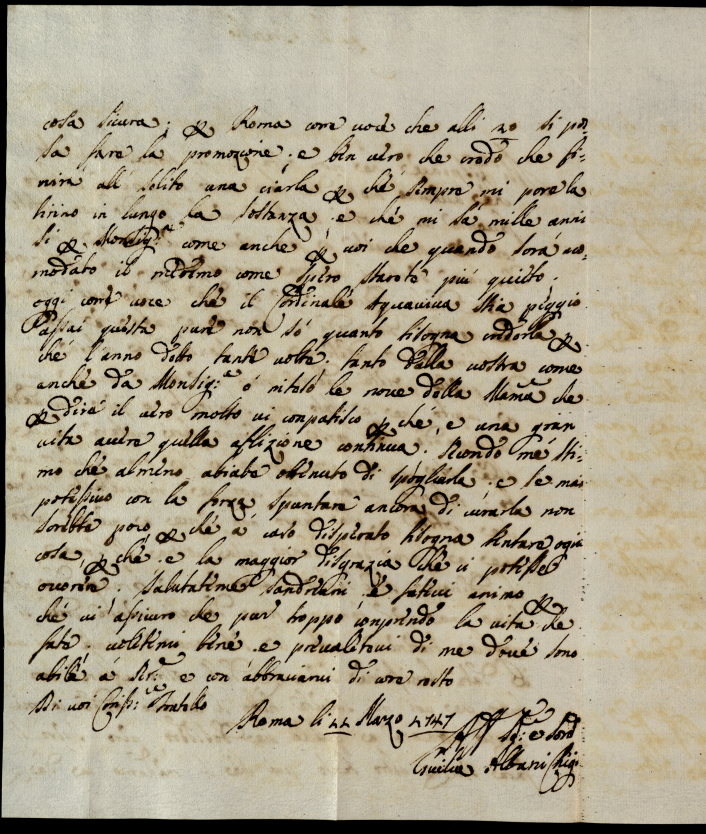 cosa sicura; p Roma corre voce che alli 20 si pos-
sa fare la promozione. e ben vero che credo che fi-
nirà all solito una ciarla p che sempre mi pare la
tirino in lungo la sostanza. e che mi sà mille anni
si p Monsig.re come anche p voi che quando sarà aco-
modato il medesimo come spero starete più quieto.
oggi corre voce che il Cardinale Aquaviva stia peggio
assai questa pure non sò quanto bisogna crederla p
che l'anno detto tante volte. tanto dalla vostra come
anche da Monsig.re ó inteso le nove della Mamà che
p dire il vero molto vi conpatisco p che, e una gran
vita avere quella aflizione continua. secondo me sti-
mo che almeno abiate otenuto di spogliarla. e se mai
potessivo con la forza spuntare ancora di curarla non
sarebbe poco p che à caso disperato bisogna tentare ogni
cosa, p che. e la maggior disgrazia che vi potesse
ocorere. salutateme Sandriani e fatevi animo p
che vi assicuro che pur troppo conprendo la vita che
fate. voletemi bene. e prevaletevi di me dove sono
abile à e con abbraciarvi di core resto
Di voi Fratello
Roma li 11 Marzo 1747
Aff. Se: e Sord
Giulia Albani Chigi